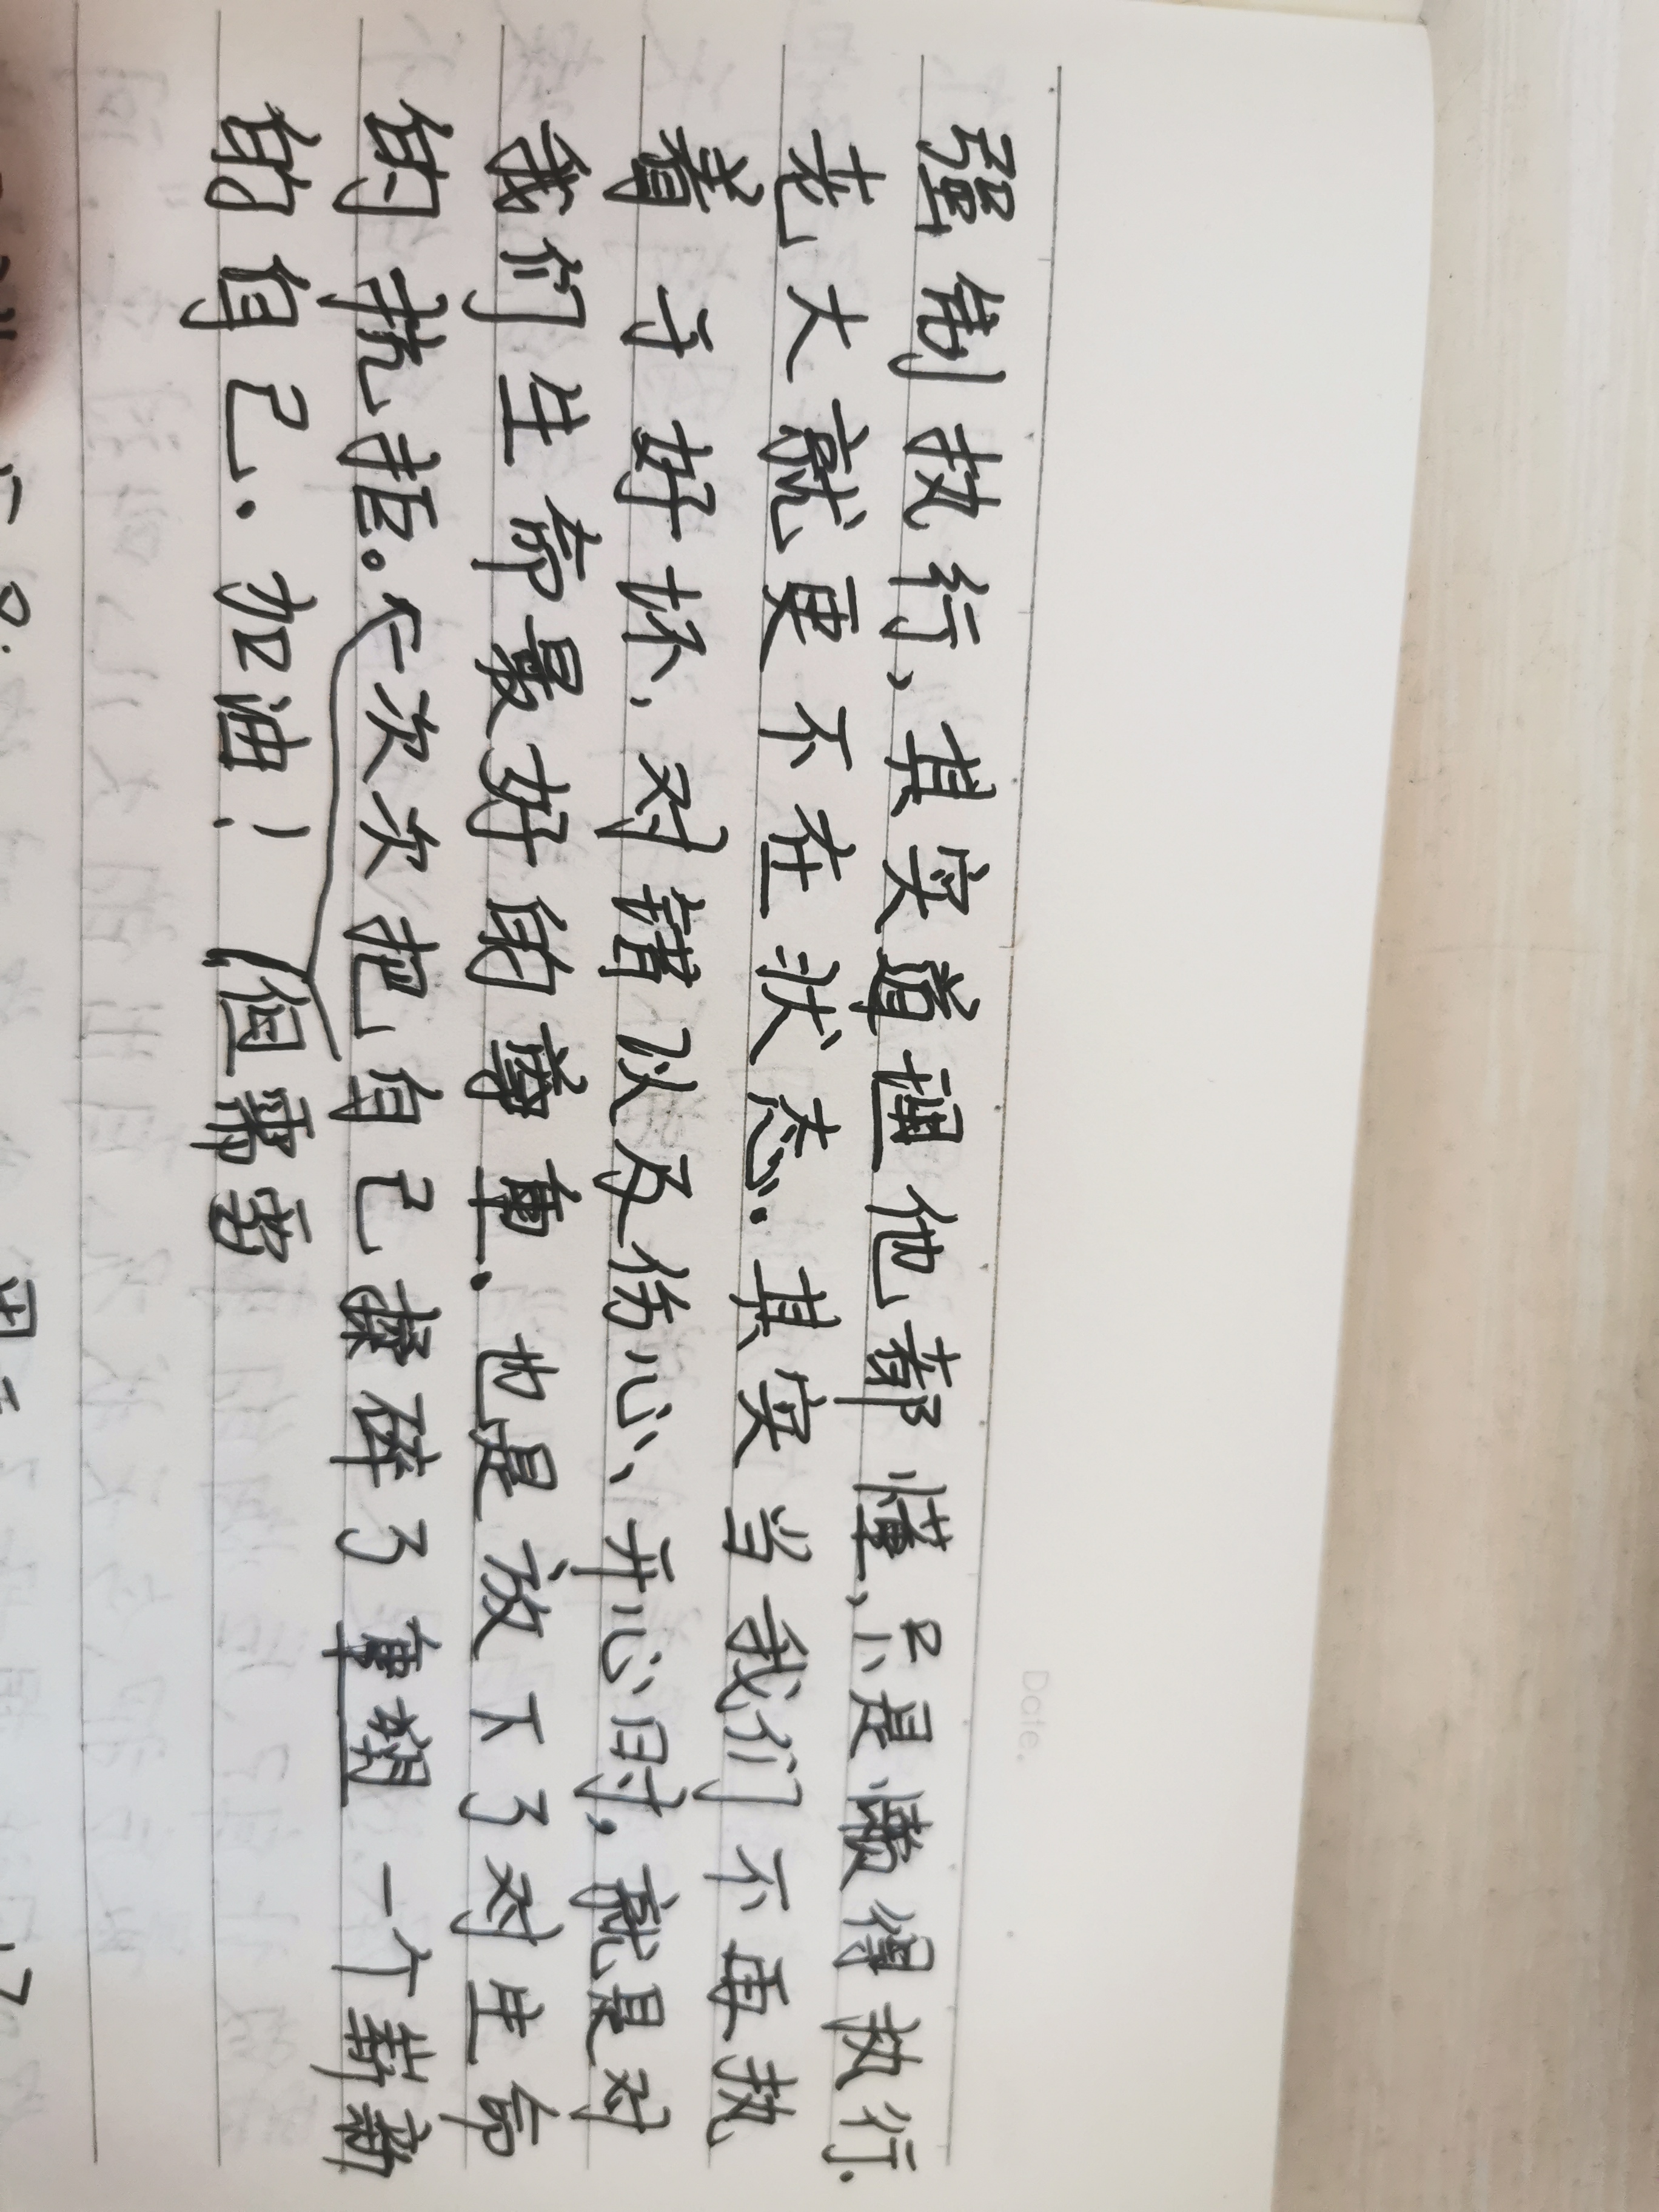 Date.
强制执行,其实道理他都懂,只是懒得执行.
老大就更不在状态.其实当我们不再执
着于好坏.对错以及伤心、开心时,就是对
我们生命最好的尊重.也是放下了对生命
的抗拒。一次次把自己揉碎了重塑一个崭新
的自己.加油!(但需要